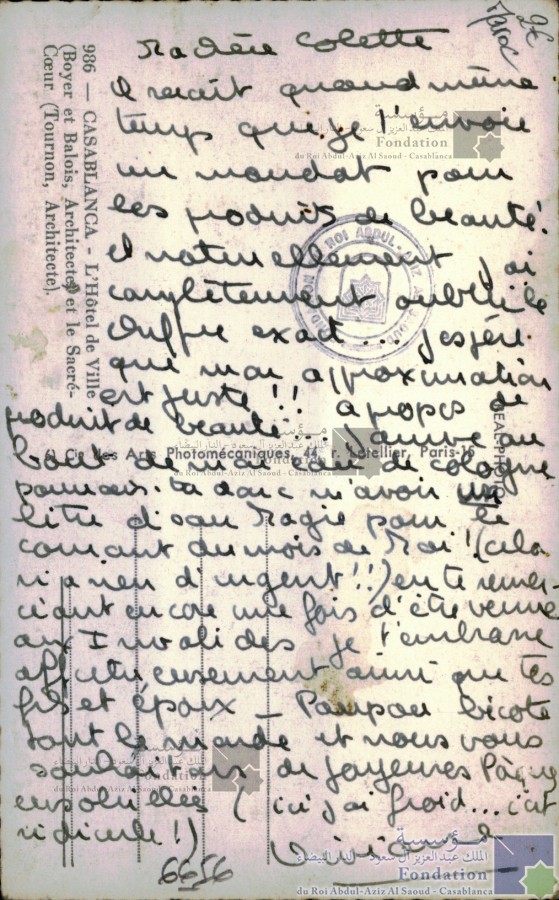 Ma chère Colette
Il serait quand même
temps que je t'envoie
un mandat pour
les produits de beauté.
et naturellement j'ai
complètement oublié le
chiffre exact... j'espère
que mon approximation
est juste!! à propos de
produit de beauté... j'arrive au
bout de mon eau de cologne
pourrais-tu donc m'avoir un
litre d'eau Magie pour le
courant du mois de Mai! (cela
n'a rien d'urgent!!) en te remer-
ciant encore une fois d'être venue
aux Invalides je t'embrasse
affectueusement ainsi que tes
fils et époux _ Poupou bicote
tout le monde et nous vous
souhaitons de joyeuses Pâques
ensoleillées (ici j'ai froid... c'est
ridicule!)
66596
Maroc
2€
986 — CASABLANCA - L'Hôtel de Ville
(Boyer et Balois, Architectes) et le Sacré-
Cœur (Tournon, Architecte).
Cie des Arts Photomécaniques, 44, r. Letellier, Paris-15
مؤسسة
الملك عبد العزيز آل سعود - الدار البيضاء
Fondation
du Roi Abdul-Aziz Al Saoud - Casablanca